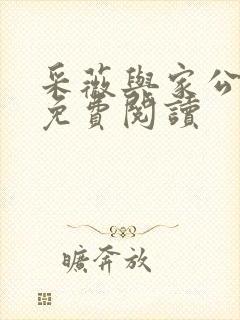 采薇與家公
免費閱讀
曠奔放